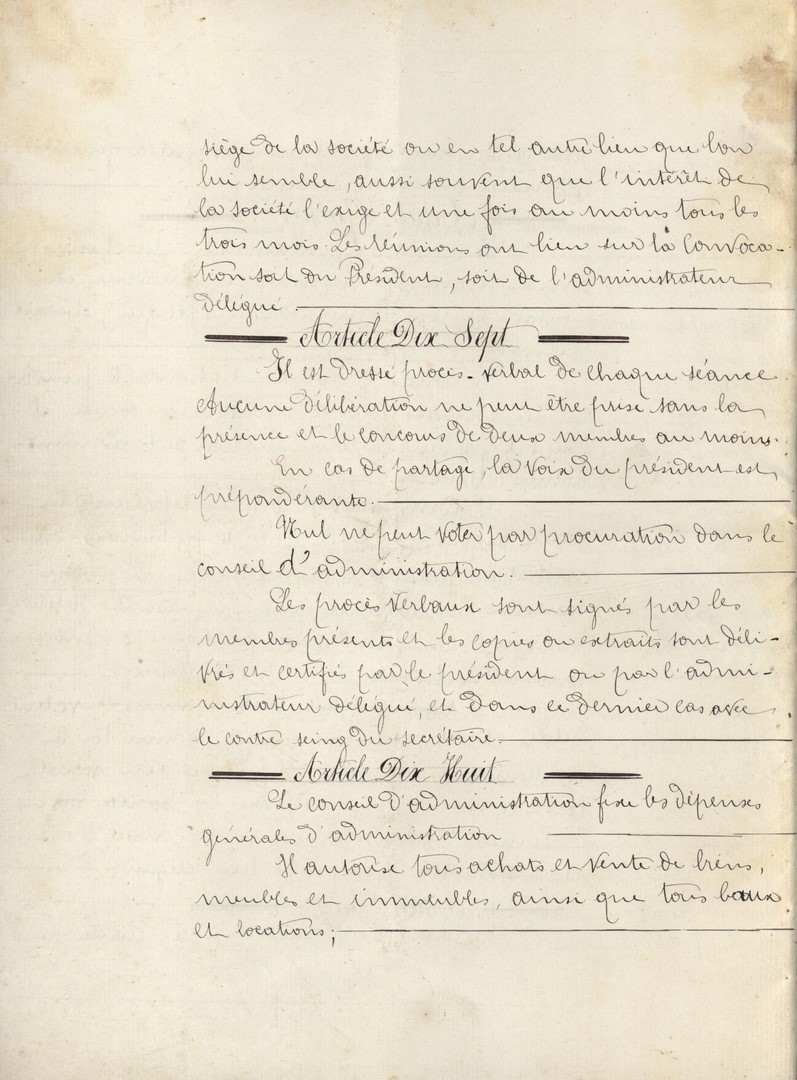 siège de la société ou en tel autre lieu que bon
lui semble, aussi souvent que l'intérêt de
la société l'exige et une fois au moins tous les
trois mois. Les réunions ont lieu sur la convoca-
tion soit du Président, soit de l'administrateur
délégué.
Article Dix Sept
Il est dressé procès-verbal de chaque séance.
Aucune délibération ne peut être prise sans la
présence et le concours de deux membres au moins.
En cas de partage, la voix du président est
prépondérante.
Nul ne peut voter par procuration dans le
conseil d'administration.
Les procès verbaux sont signés par les
membres présents et les copies ou extraits sont déli-
vrés et certifiés par le président ou par l'admi-
nistrateur délégué, et dans ce dernier cas avec
le contre seing du secrétaire.
Article Dix Huit
Le conseil d'administration fixe les dépenses
générales d'administration
Il autorise tous achats et vente de biens,
meubles et immeubles, ainsi que tous baux
et locations;